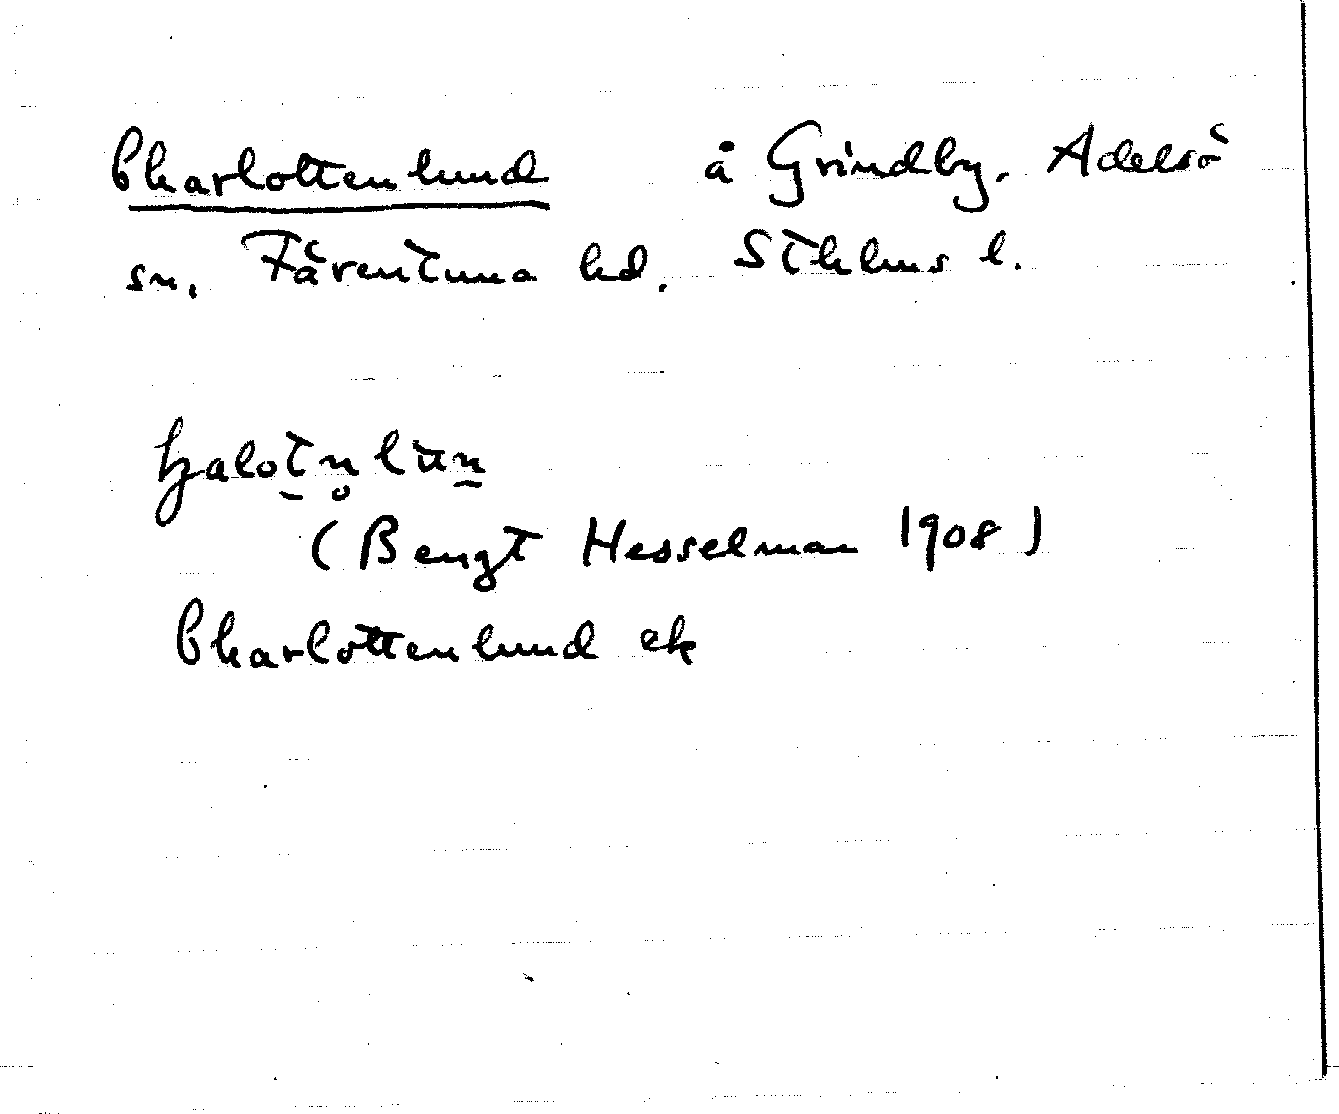 Charlottenlund å Grindby, Adelsö
sn, Färentuna hd, Sthlms l.
(Bengt Hesselman 1908)
Charlottenlund ek